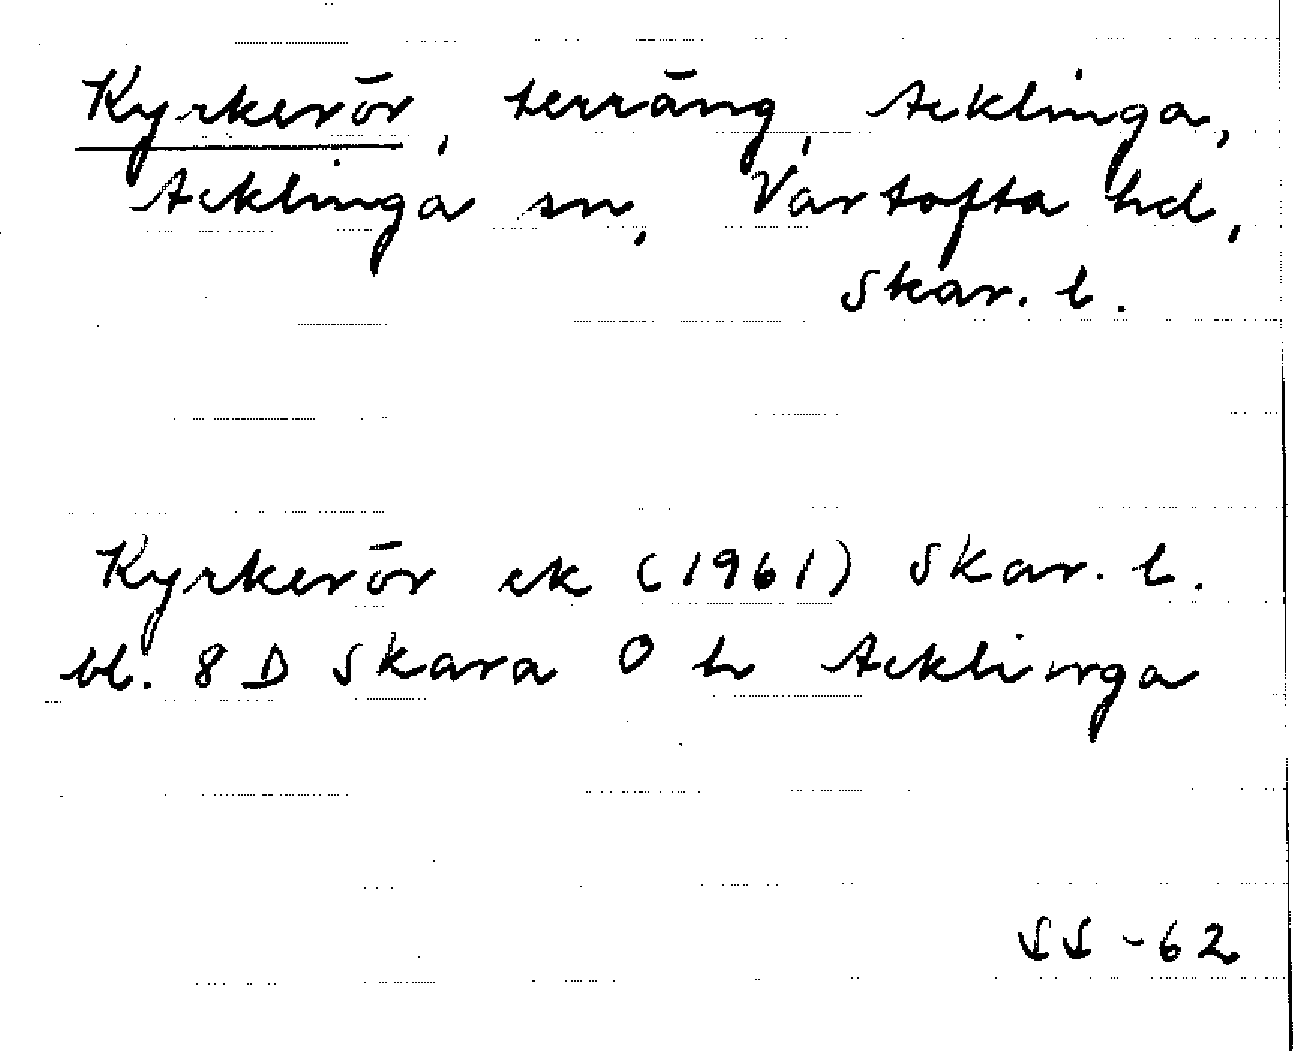 Kyrkerör, terräng, Acklinga,
Acklinga sn, Vartofta hd,
Skar. l.
Kyrkerör ek (1961) Skar. l.
bl. 8 D Skara O h Acklinga
SS -62